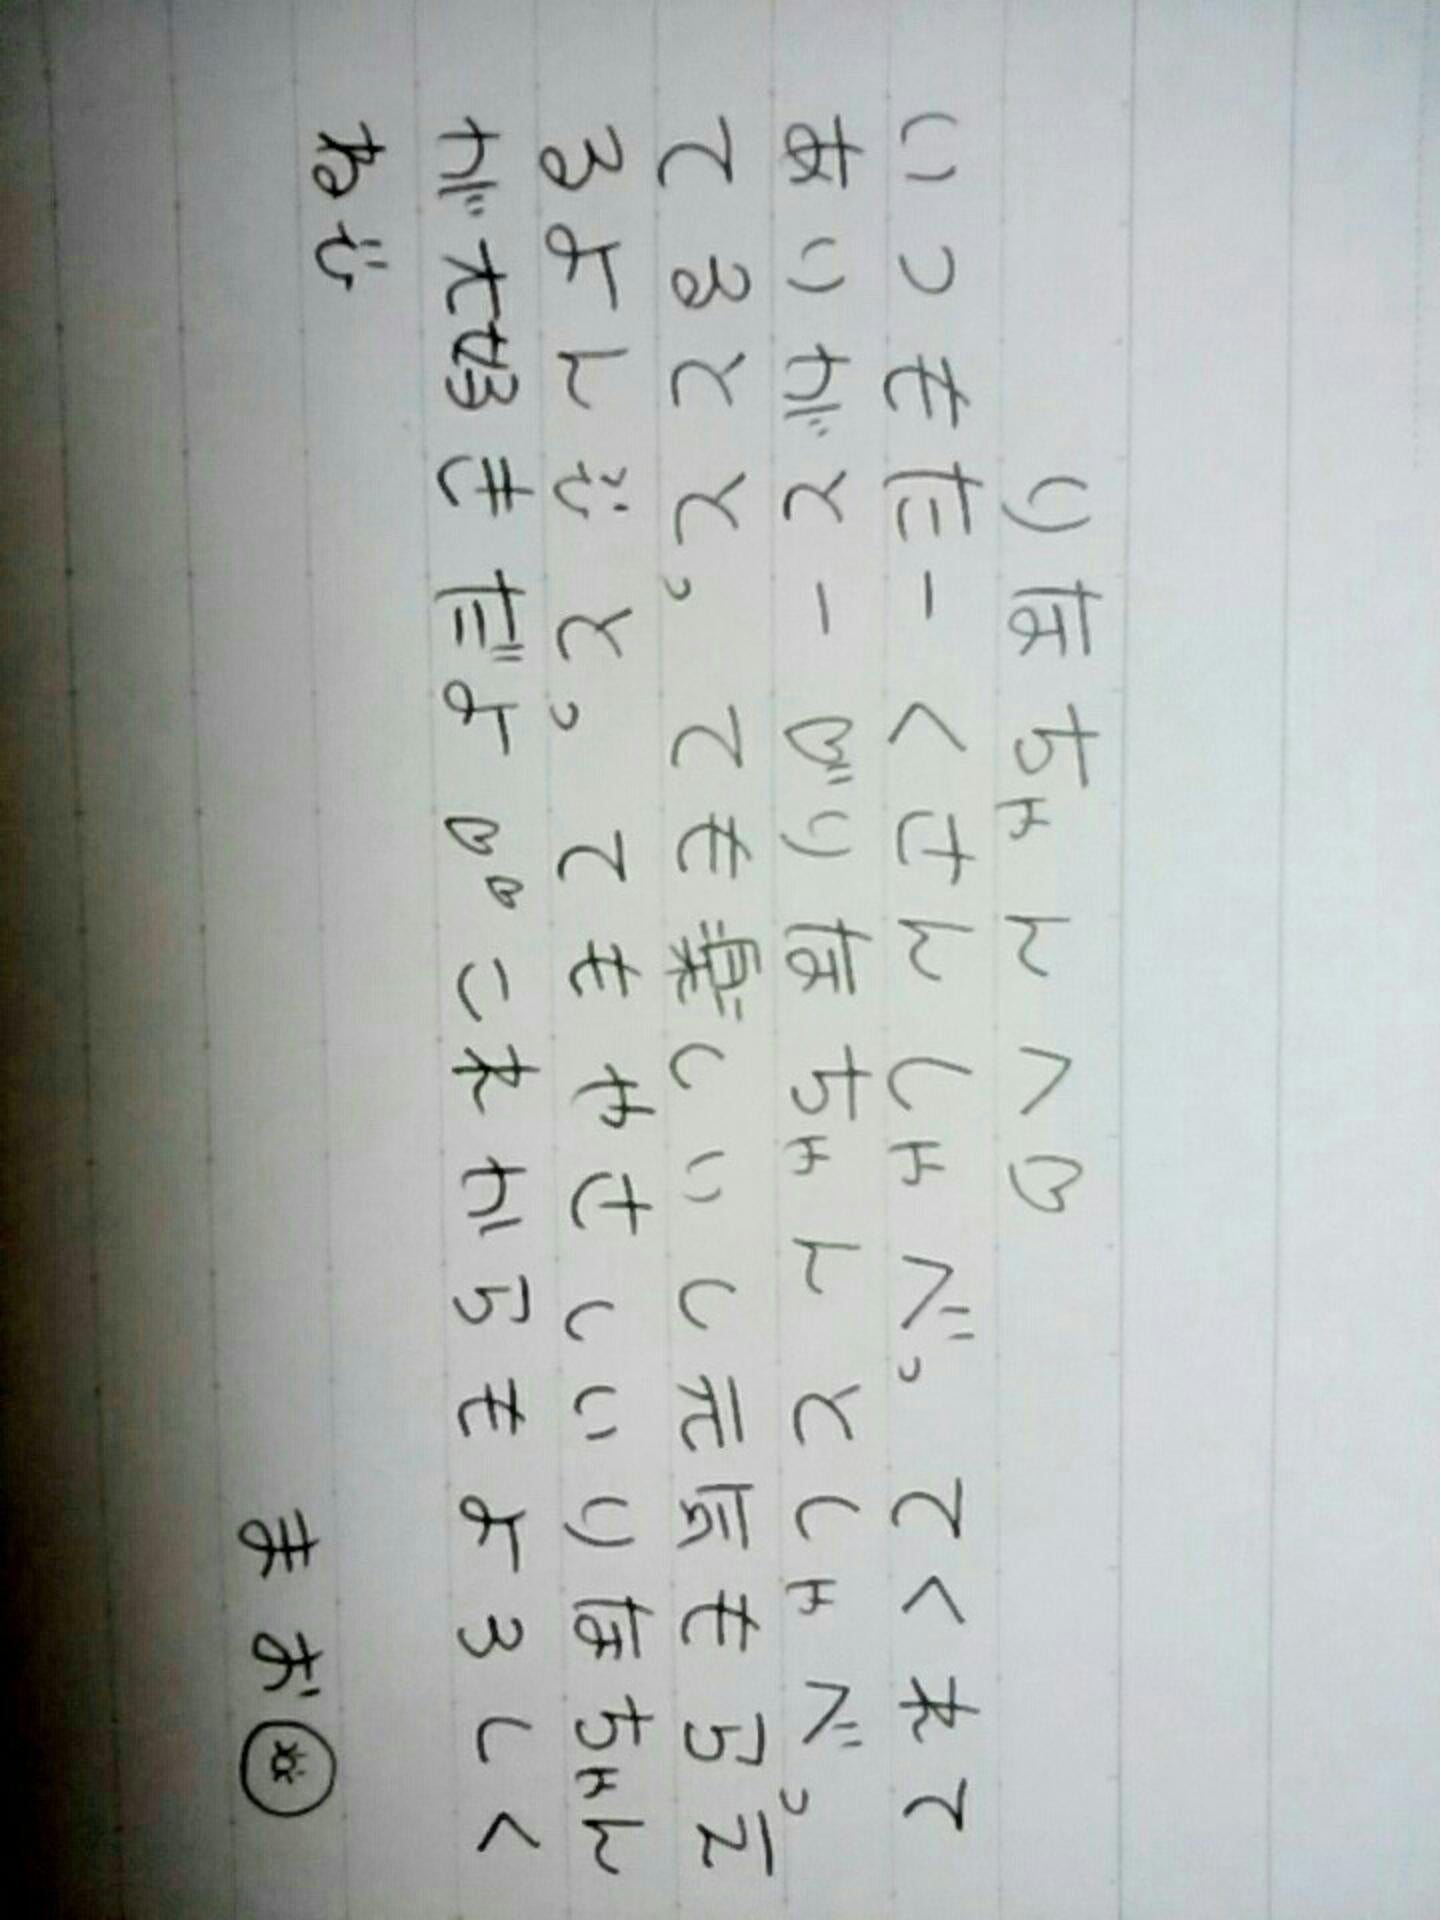 りほちゃんへ♡
いつもたーくさんしゃべってくれて
ありがとー♡りほちゃんとしゃべっ
てるととっても楽しいし元気もらえ
るよんü とってもやさしいりほちゃん
が大好きだよ♡♡これからもよろしく
ねü
まお